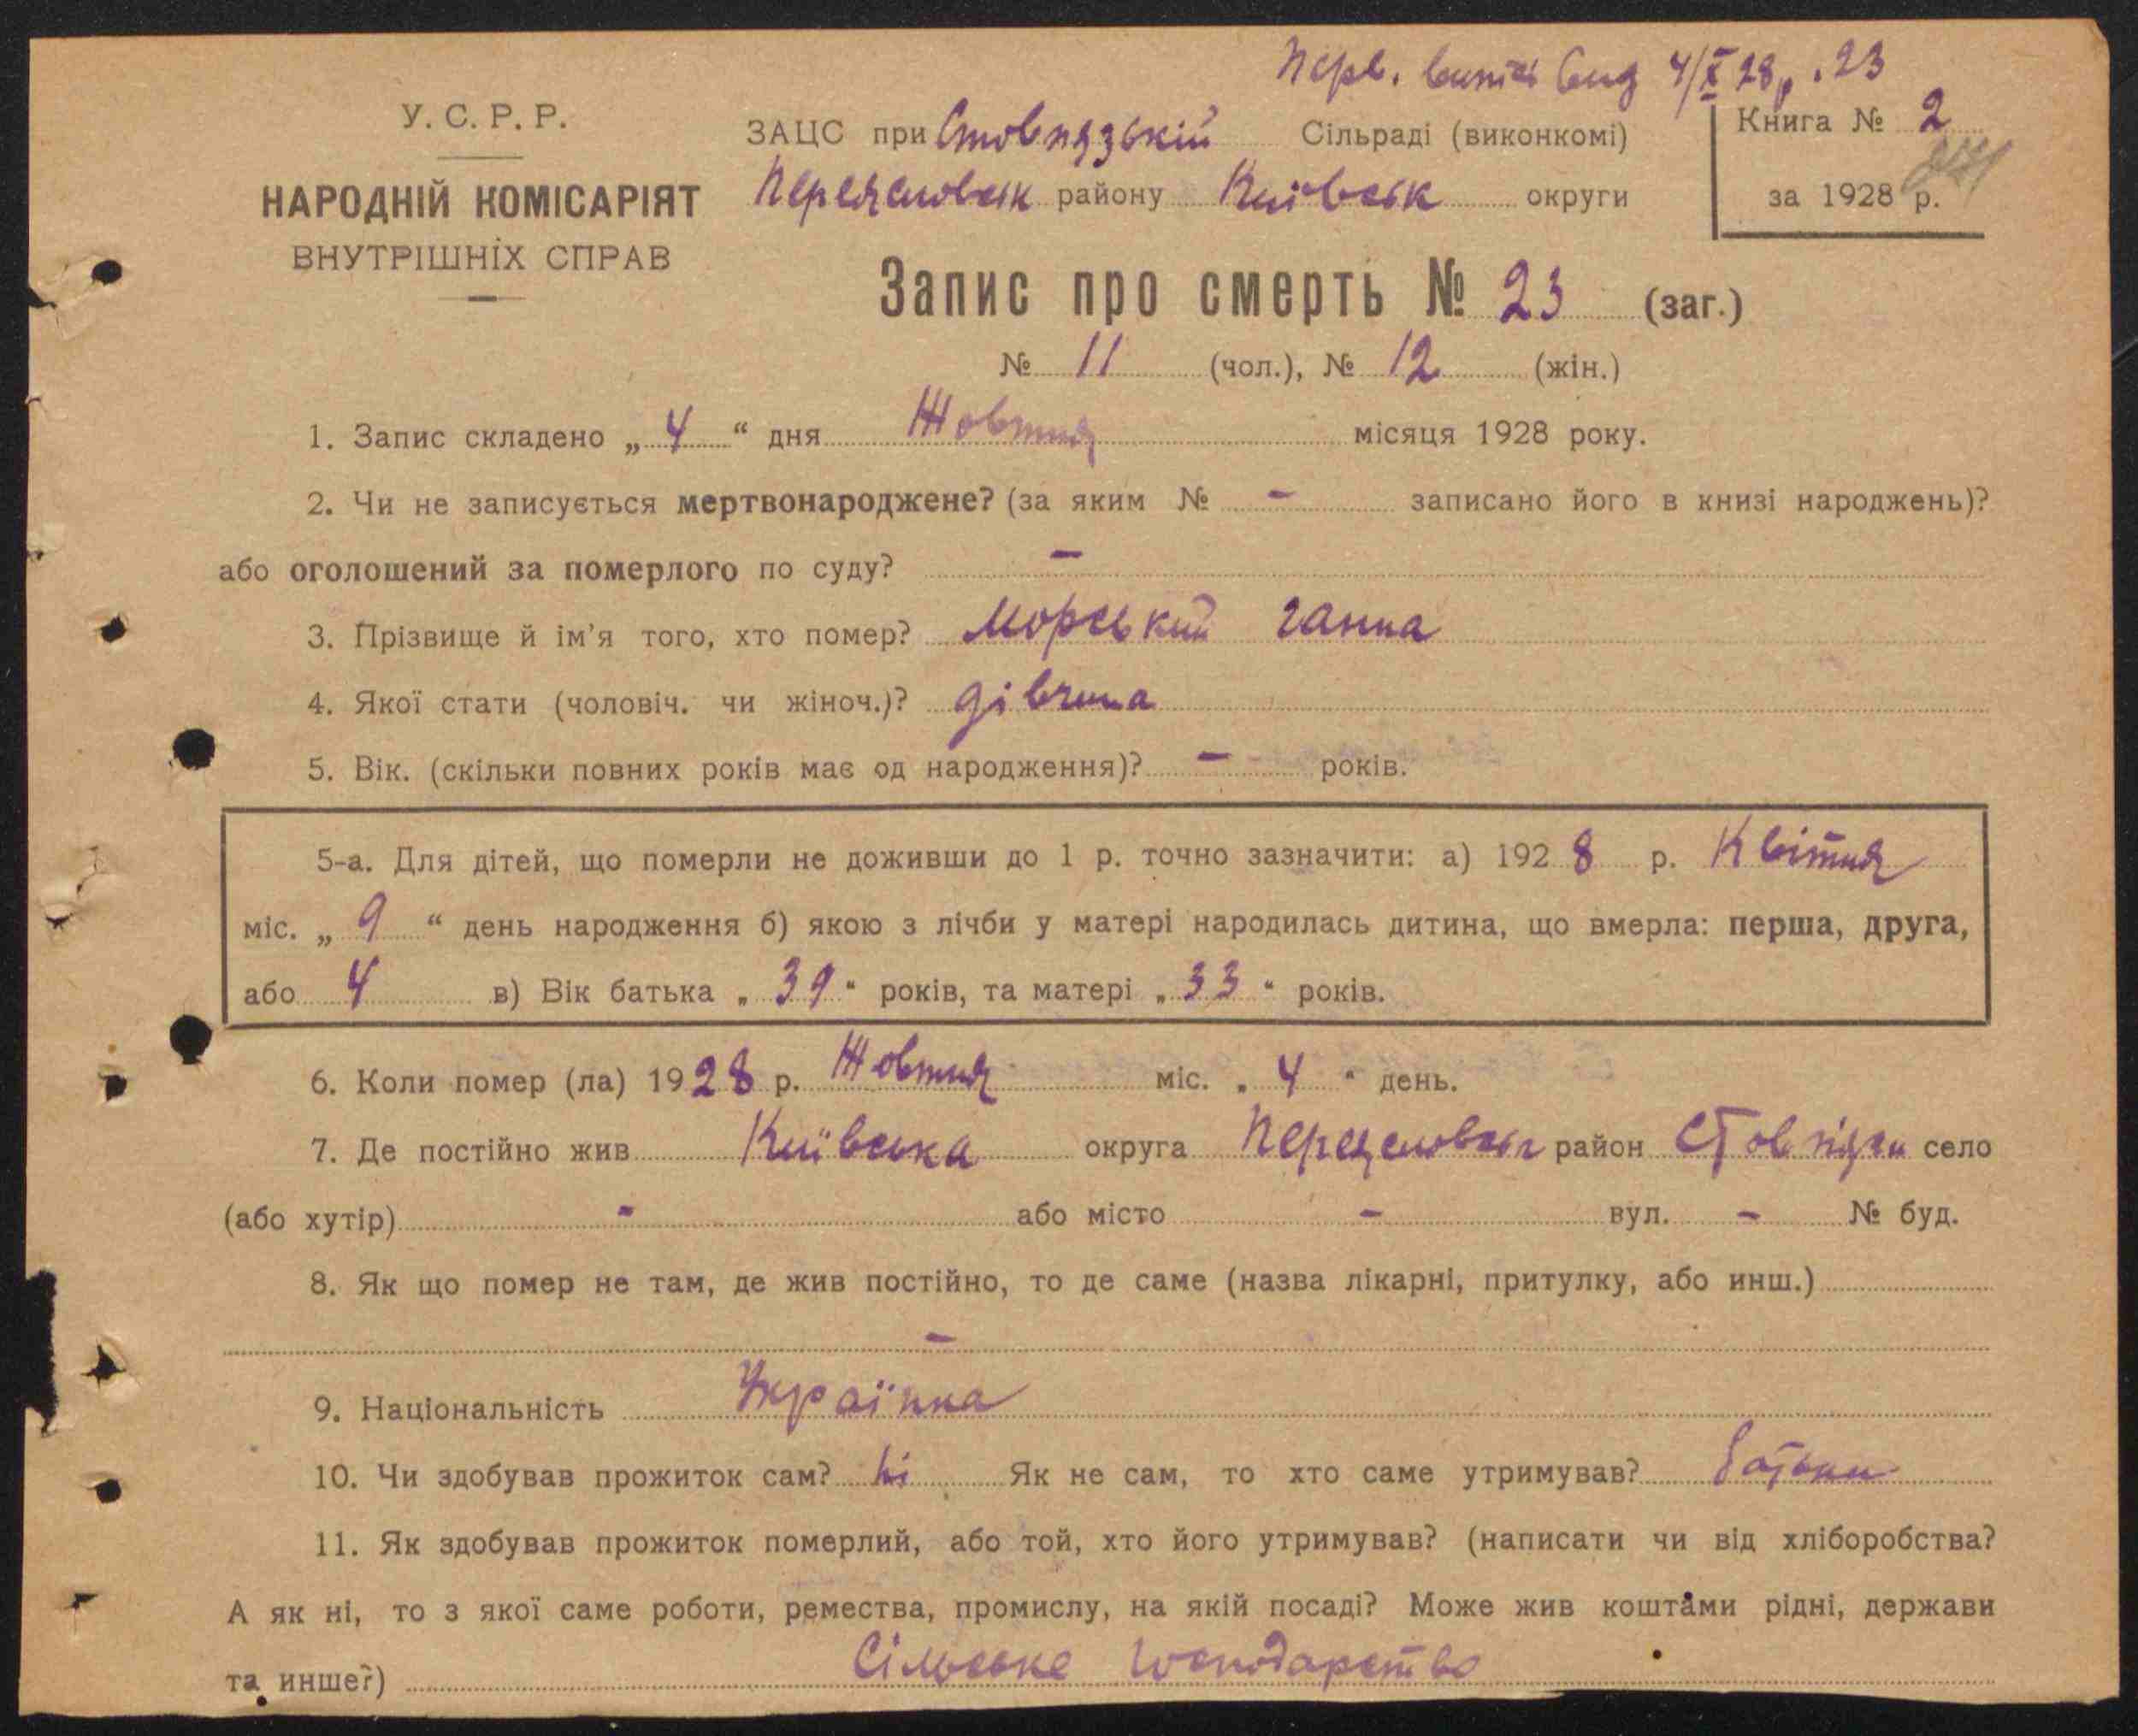 Перв. витяг вид 4/X 28 р. 23
У. С. Р. Р.
НАРОДНІЙ КОМІСАРІЯТ
ВНУТРІШНІХ СПРАВ
ЗАЦС при Стовпязькій Сільраді (виконкомі)
Переяславськ району Київськ округи
Книга № 2
за 1928 р.
Запис про смерть № 23 (заг.)
№ 11 (чол.), № 12 (жін.)
1. Запис складено „ 4 “ дня Жовтня місяця 1928 року.
2. Чи не записується мертвонароджене? (за яким № - записано його в книзі народжень)?
або оголошений за померлого по суду? -
3. Прізвище й ім'я того, хто помер? Морський Ганна
4. Якої стати (чоловіч. чи жіноч.)? дівчина
5. Вік. (скільки повних років має од народження)? - років.
5-а. Для дітей, що померли не доживши до 1 р. точно зазначити: а) 1928 р. Квітня
міс. „ 9 “ день народження б) якою з лічби у матері народилась дитина, що вмерла: перша, друга,
або 4 в) Вік батька „ 39 “ років, та матері „ 33 “ років.
6. Коли помер (ла) 1928 р. Жовтня міс. „ 4 “ день.
7. Де постійно жив Київська округа район село
(або хутір) - або місто - вул. - № буд.
8. Як що помер не там, де жив постійно, то де саме (назва лікарні, притулку, або инш.)
-
9. Національність Українка
10. Чи здобував прожиток сам? ні Як не сам, то хто саме утримував? батьки
11. Як здобував прожиток померлий, або той, хто його утримував? (написати чи від хліборобства?
А як ні, то з якої саме роботи, ремества, промислу, на якій посаді? Може жив коштами рідні, держави
та инше?) Сільське господарство